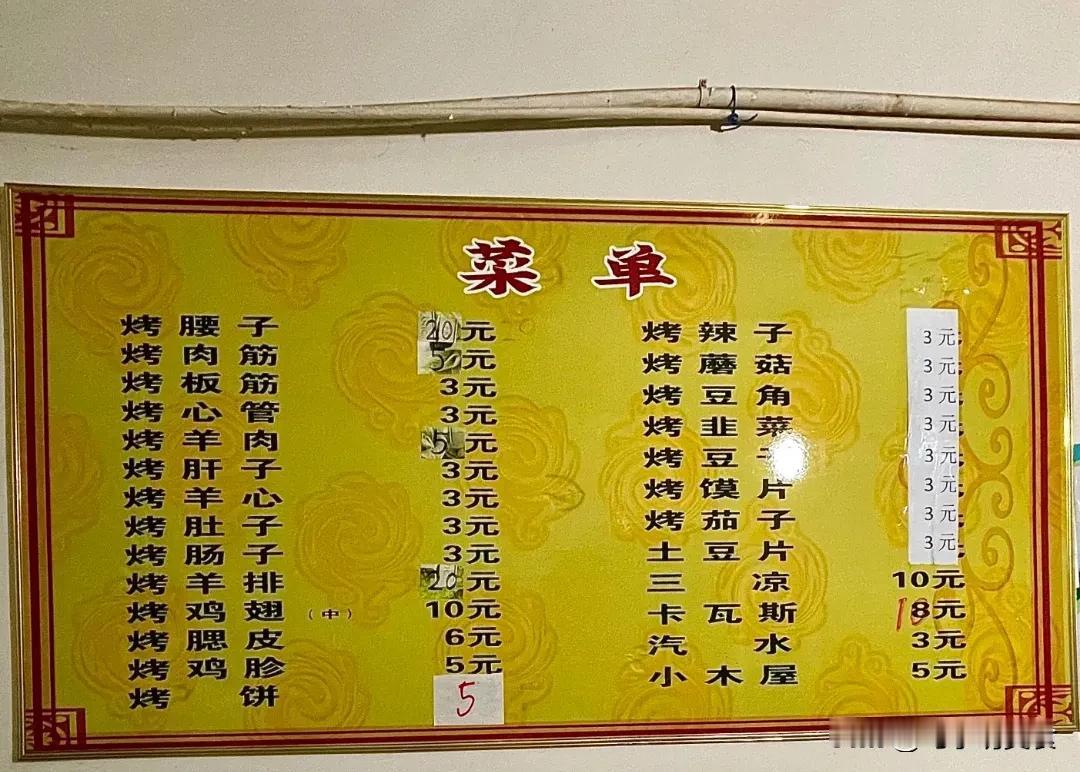 菜单
烤腰子 20元
烤肉筋 5元
烤板筋 3元
烤心管 3元
烤羊肉 5元
烤肝子 3元
烤羊心 3元
烤肚子 3元
烤肠子 3元
烤羊排 20元
烤鸡翅（中） 10元
烤腮皮 6元
烤鸡胗 5元
烤饼 5
烤辣子 3元
烤蘑菇 3元
烤豆角 3元
烤韭菜 3元
烤豆 3元
烤馍片 3元
烤茄子 3元
土豆片 3元
三凉 10元
卡瓦斯 10元
汽水 3元
小木屋 5元